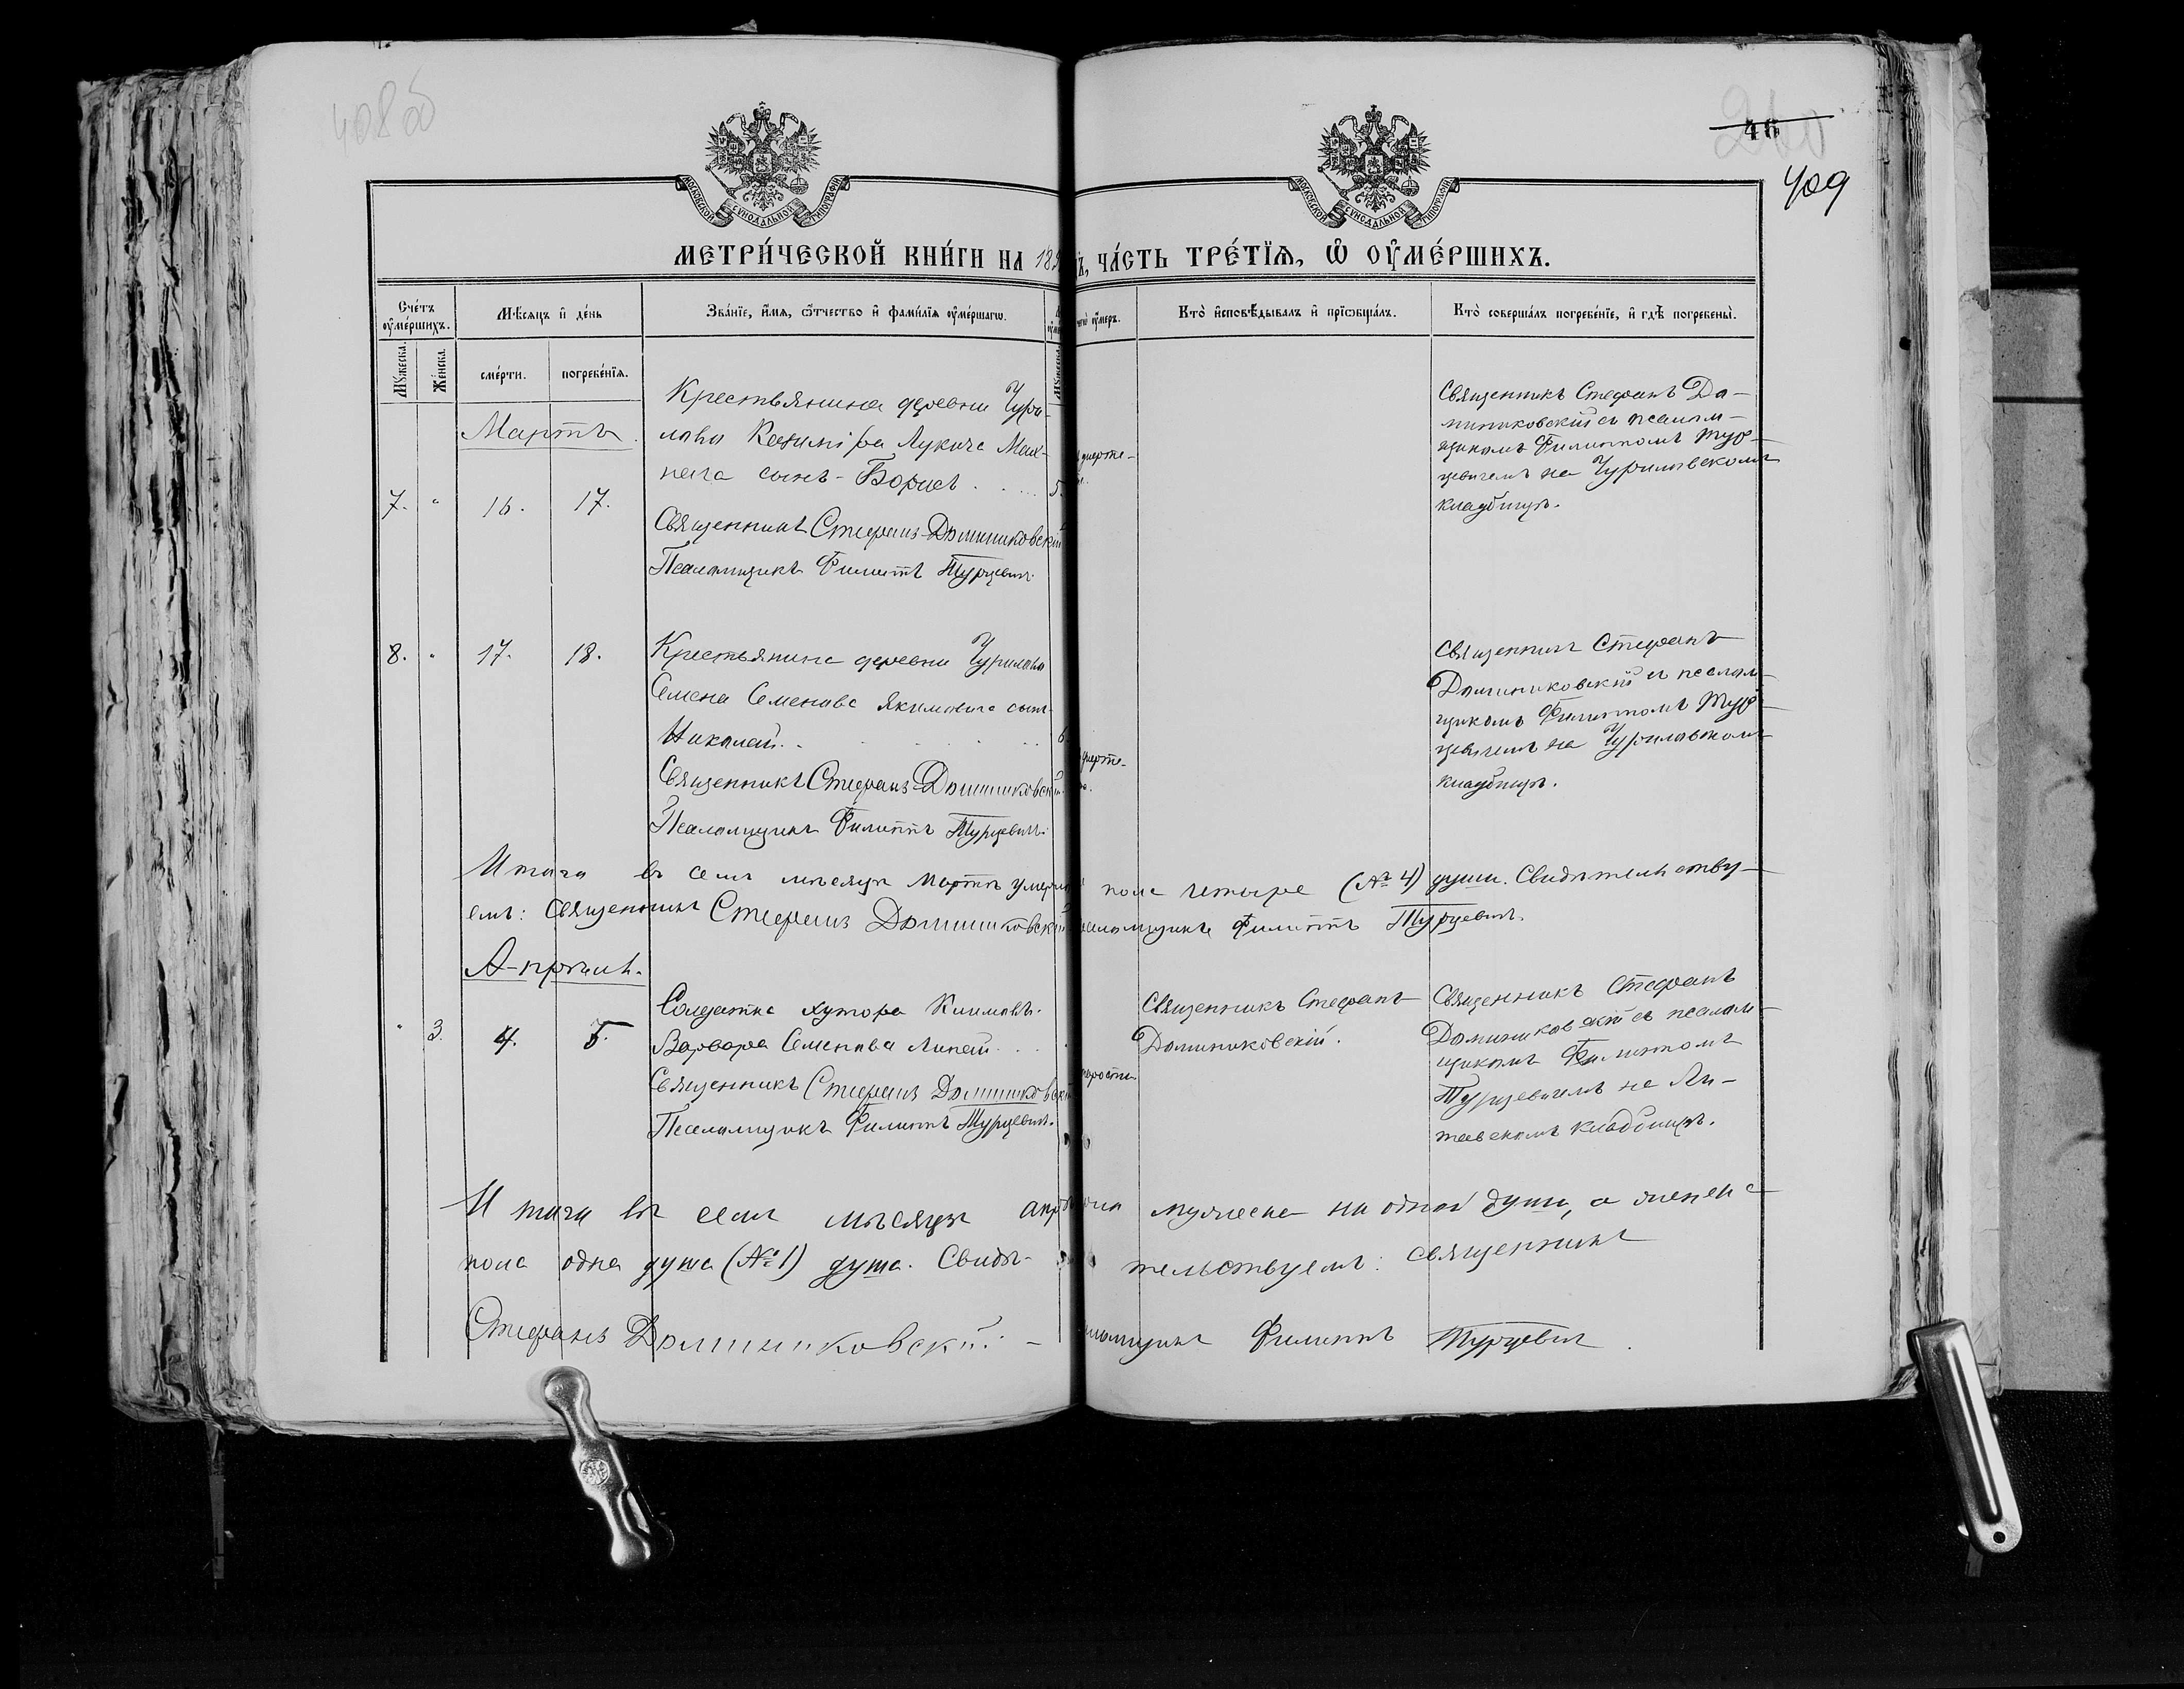 408об
46
409
МОСКОВСКОЙ СѴНОДАЛЬНОЙ ТИПОГРАФІИ
МОСКОВСКОЙ СѴНОДАЛЬНОЙ ТИПОГРАФІИ
МЕТРИ́ЧЕСКОЙ КНИ́ГИ НА 189
ЧА́СТЬ ТРЕ́ТІѦ, Ѽ ОУ҆МЕ́РШИХЪ.
Сче́тъ оу҆ме́ршихъ.
Мѣ́сяцъ и҆ де́нь
Зва́нїе, и҆́мѧ, ѻ҆́тчество и҆ фами́лїѧ оу҆ме́ршагѡ.
чегѡ̀ оу҆́меръ.
Кто̀ и҆сповѣ́дывалъ и҆ прїѡбща́лъ.
Кто̀ соверша́лъ погребе́нїе, и҆ гдѣ̀ погребены̀.
Мꙋ́жеска.
Же́нска.
сме́рти.
погребе́нїѧ.
Мꙋ́жеска.
Мартъ
7. " 16. 17.
Крестьянина деревни Чури-
лова Казиміра Лукича Мах-
нача сынъ - Борисъ . . . 5.
Священникъ Стефанъ Доминиковскій
Псаломщикъ Филиппъ Турцевич.
Священникъ Стефанъ До-
миниковскій съ псалом-
щикомъ Филиппомъ Тур-
цевичемъ на Чуриловскомъ
кладбищѣ.
8. " 17. 18.
Крестьянина деревни Чурилова
Семена Семенова Якимовича сынъ
Николай . . . 6.
Священникъ Стефанъ Доминиковскій.
Псаломщикъ Филиппъ Турцевич.
Священникъ Стефанъ
Доминиковскій съ псалом-
щикомъ Филиппомъ Тур-
цевичемъ на Чуриловскомъ
кладбищѣ.
Итого въ семъ мѣсяцѣ Мартѣ умерло
пола четыре (№ 4) души. Свидѣтельству-
емъ: Священникъ Стефанъ Доминиковскій
Филиппъ Турцевич.
Апрѣль.
" 3. 4. 5.
Солдатка хутора Климовъ.
Варвара Семенова
Священникъ Стефанъ Доминиковскій
Псаломщикъ Филиппъ Турцевич.
Священникъ Стефанъ
Доминиковскій.
Священникъ Стефанъ
Доминиковскій съ псалом-
щикомъ Филиппомъ
Турцевичемъ на Ли-
кладбищѣ.
Итого въ семъ мѣсяцѣ
мужеска ни одной души, а женска
пола одна душа (№ 1) душа. Свидѣ-
тельствуемъ: Священникъ
Стефанъ Доминиковскій. -
Филиппъ Турцевич